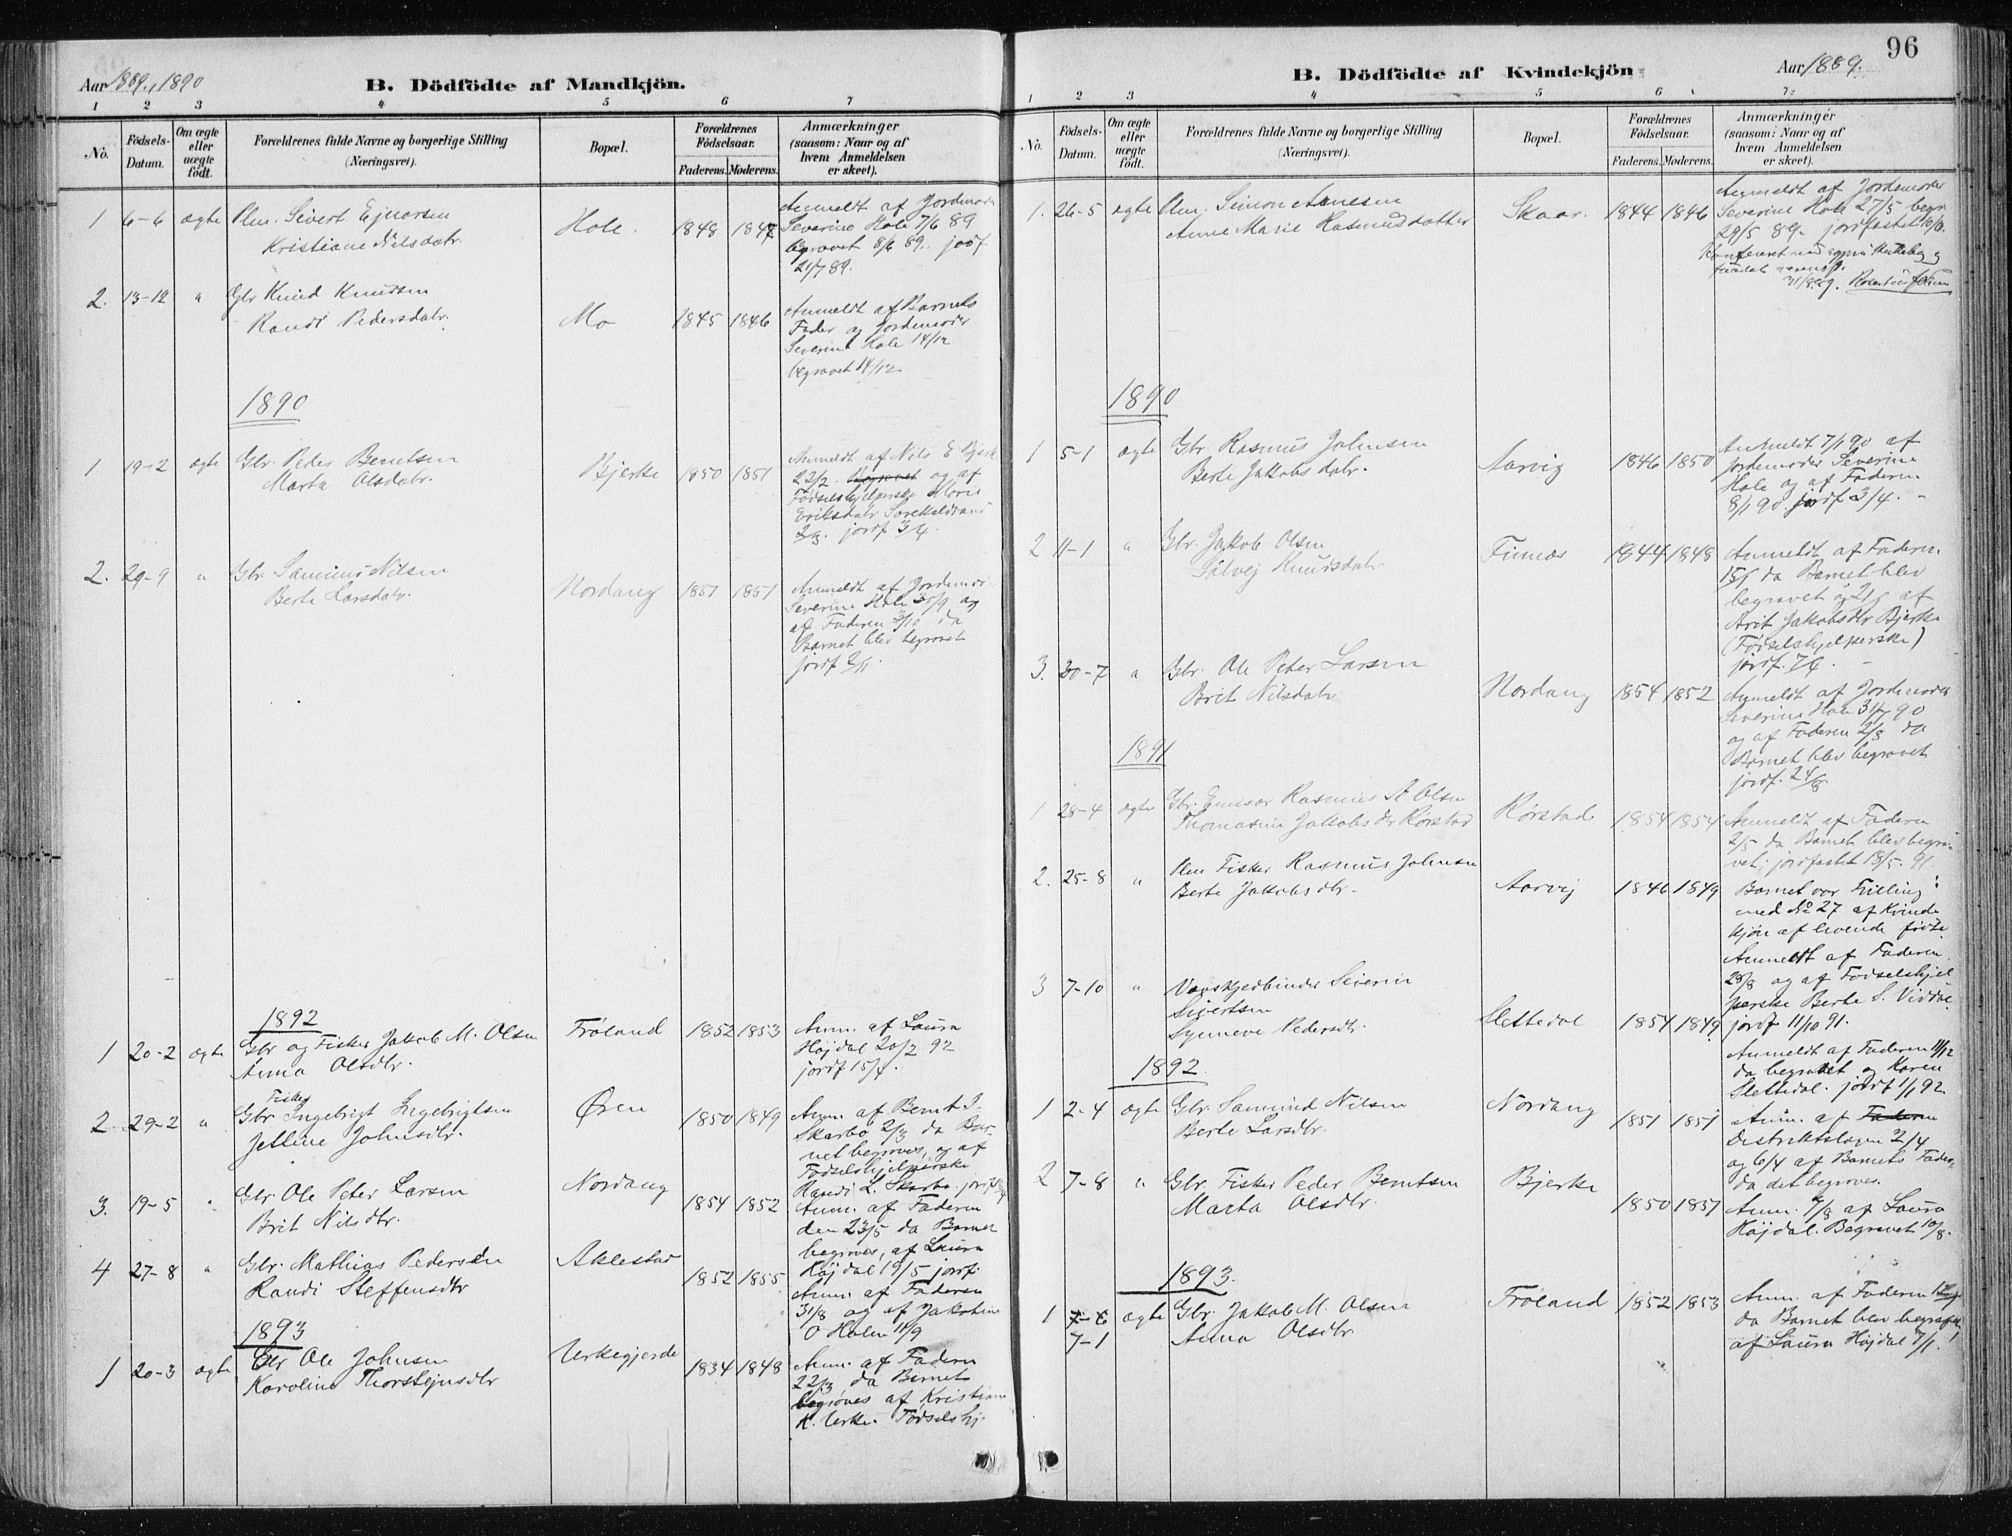 Aar 1889, 1890
B. Dödfödte af Mandkjön.
1 2 3 4 5 6 7
No. Födsels-Datum. Om ægte eller uægte födt. Forældrenes fulde Navne og borgerlige Stilling (Næringsvei). Bopæl. Forældrenes Födselsaar. Faderens. Moderens. Anmærkninger (saasom: Naar og af hvem Anmeldelsen er skeet).
1 6-6 ægte Plm. Sivert Ejnarsen Hole. 1848 1847 Anmeldt af Jordemoder
Kristiane Nilsdatr. Severine Hole 7/6 89
begravet 8/6 89. jordf.
21/7 89.
2. 13-12 " Gbr Knud Knudsen Mo 1845 1846 Anmeldt af Barnets
Randi Pedersdatr. Fader og Jordemoder
Severine Hole 14/12
begravet 14/12
1890
1 19-2 ægte Gbr. Peder Berntsen Bjerke 1850 1851 Anmeldt af Nils E Bjerk
Marta Olsdatr. 22/2 begravet og af
Fødselshjelperske
Eriksdatr
jordf. 3/4.
2. 29-9 " Gbr Samund Nilsen Nordang 1851 1851 Anmeldt af Jordemoder
Berte Larsdatr. Severine Hole 30/9 og
af Faderen 3/10 da
Barnet blev begravet
jordf 2/11.
1892
1 20-2 ægte Gbr og Fisker Jakob M. Olsen Frøland 1852 1853 Anm. af Laura
Anna Olsdtr. Højdal 20/2 92
jordf 15/4.
2. 29-2 " Gbr Fisker Ingebrigt Ingebrigtsen Øren 1850 1849 Anm. af Bernt I.
Jelline Johnsdtr. Skarbø 2/3 da Bar-
net begroves, og af
Fødselshjelperske
Randi L. Skarbø. jordf
3. 19-5 " Gbr. Ole Peter Larsen Nordang 1854 1852 Anm. af Faderen
Brit Nilsdtr. den 23/5 da Barnet
begroves, af Laura
Højdal 19/5 jordf.
4 27-8 " Gbr. Mathias Pedersen Aklestad 1852 1855 Anm. af Faderen
Randi Steffensdtr 31/8 og af Jakobine
O Holen 11/9
1893
1 20-3 ægte Gbr Ole Johnsen Urkegjerde 1834 1848 Anm. af Faderen
Karoline Thorstejnsdtr 22/3 da Barnet
begroves af Kristiane
K. Urke. Fødselshj.
96
B. Dödfödte af Kvindekjön
Aar 1889.
1 2 3 4 5 6 7
No. Födsels-Datum. Om ægte eller uægte födt. Forældrenes fulde Navne og borgerlige Stilling (Næringsvei). Bopæl. Forældrenes Födselsaar. Faderens. Moderens. Anmærkninger (saasom: Naar og af hvem Anmeldelsen er skeet).
1. 26-5 ægte Plm. Simon Aanesen Skaar. 1844 1846 Anmeldt af Jordemoder
Anne Marie Rasmusdatter Severine Hole 27/5 begr.
29/5 89. jordfæstet
31/8 89.
1890
1 5-1 ægte Gbr. Rasmus Johnsen Aarvig 1846 1850 Anmeldt 7/1 90 af
Berte Jakobsdatr. Jordemoder Severine
Hole og af Faderen
8/1 90 jordf 3/4.
2 11-1 " Gbr. Jakob Olsen Finnes 1844 1848 Anmeldt af Faderen
Sølvej Knudsdatr 15/1 da Barnet blev
begravet og af
Brit Jakobsdtr Bjerke
(Fødselshjelperske)
jordf.
3. 30-7 " Gbr. Ole Peter Larsen Nordang 1854 1852 Anmeldt af Jordemoder
Brit Nilsdatr Severine Hole 31/7 90
og af Faderen 2/8 da
Barnet blev begravet
jordf. 24/8.
1891
1 28-4 ægte Gbr. Rasmus A Olsen Rørstad 1854 1854 Anmeldt af Faderen
Thomasine Jakobsdtr Rørstad 2/5 da Barnet blev begra-
vet, jordfæstet 18/5. 91.
2. 25-8 " Plm Fisker Rasmus Johnsen Aarvig 1846 1849 Barnet var Trilling
Berte Jakobsdtr. med No 27 af Kvinde
kjøn af levende fødte.
Anmeldt af Faderen
29/8 og af Fødselshjel
perske Berte S. Viddal
jordf 11/10 91.
3 7-10 " Vævskjedbinder Severin Slettedal 1854 1849
Sivertsen
Synneve Pedersdtr. Anmeldt af Faderen 11/12
da begravet og Karen
Slettedal. jordf 1/1 92.
1892.
1 2-4 ægte Gbr. Samund Nilsen Nordang 1851 1851 Anm. af Faderen
Berte Larsdtr. Destriktslægen 2/4
og 6/4 af Barnets Fader,
da det begroves.
2 7-8 " Gbr. Fisker Peder Berntsen Bjerke 1850 1851 Anm. 9/8 af Laura
Marta Olsdtr. Højdal. Begravet 10/8.
1893.
1 7-1 ægte Gbr. Jakob M. Olsen Frøland 1852 1853 Anm. af Faderen
Anna Olsdtr da Barnet blev begravet
af Laura Højdal 7/1.